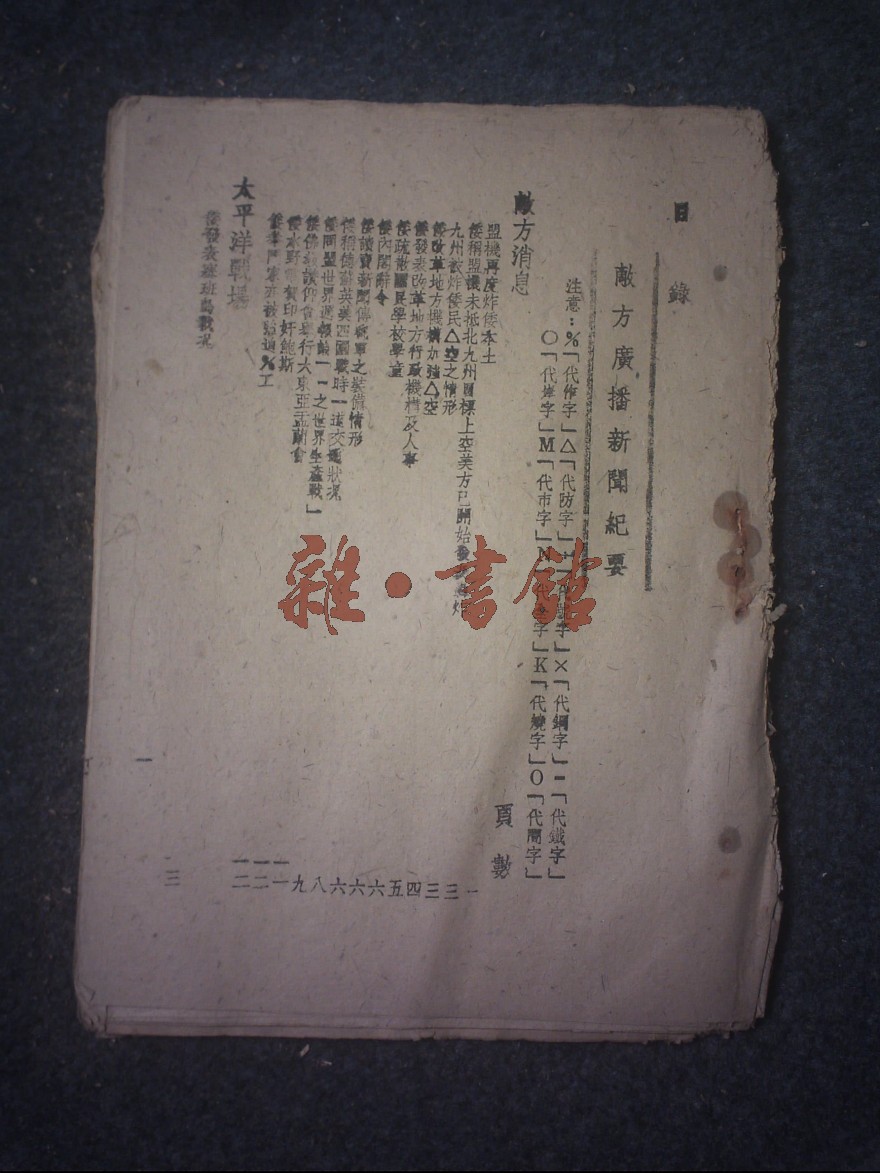 目錄
敵方廣播新聞紀要
注意：％「代作字」△「代防字」「代字」×「代鋼字」－「代鐵字」
〇「代岸字」M「代市字」N「代字」K「代燒字」O「代間字」
頁數
敵方消息
盟機再度炸倭本土 一
倭稱盟機未抵北九州目標上空美方已開始 三
九州被炸倭民△空之情形 三
倭改革地方機構加強△空 四
倭發表改革地方行政機構及人事 五
倭疏散國民學校學童 六
倭內閣辭令 六
倭讀賣新聞傳 軍之裝備情形 六
倭稱德蘇英美四國戰時一 交通狀況 八
倭同盟世界週報論「一之世界生產戰」 九
倭佛 仰會舉行大東亞盂蘭會 一一
倭水野 賀印奸鮑斯 一二
倭 ％工 一二
太平洋戰場
倭發表塞班島戰況 一三
雜・書館